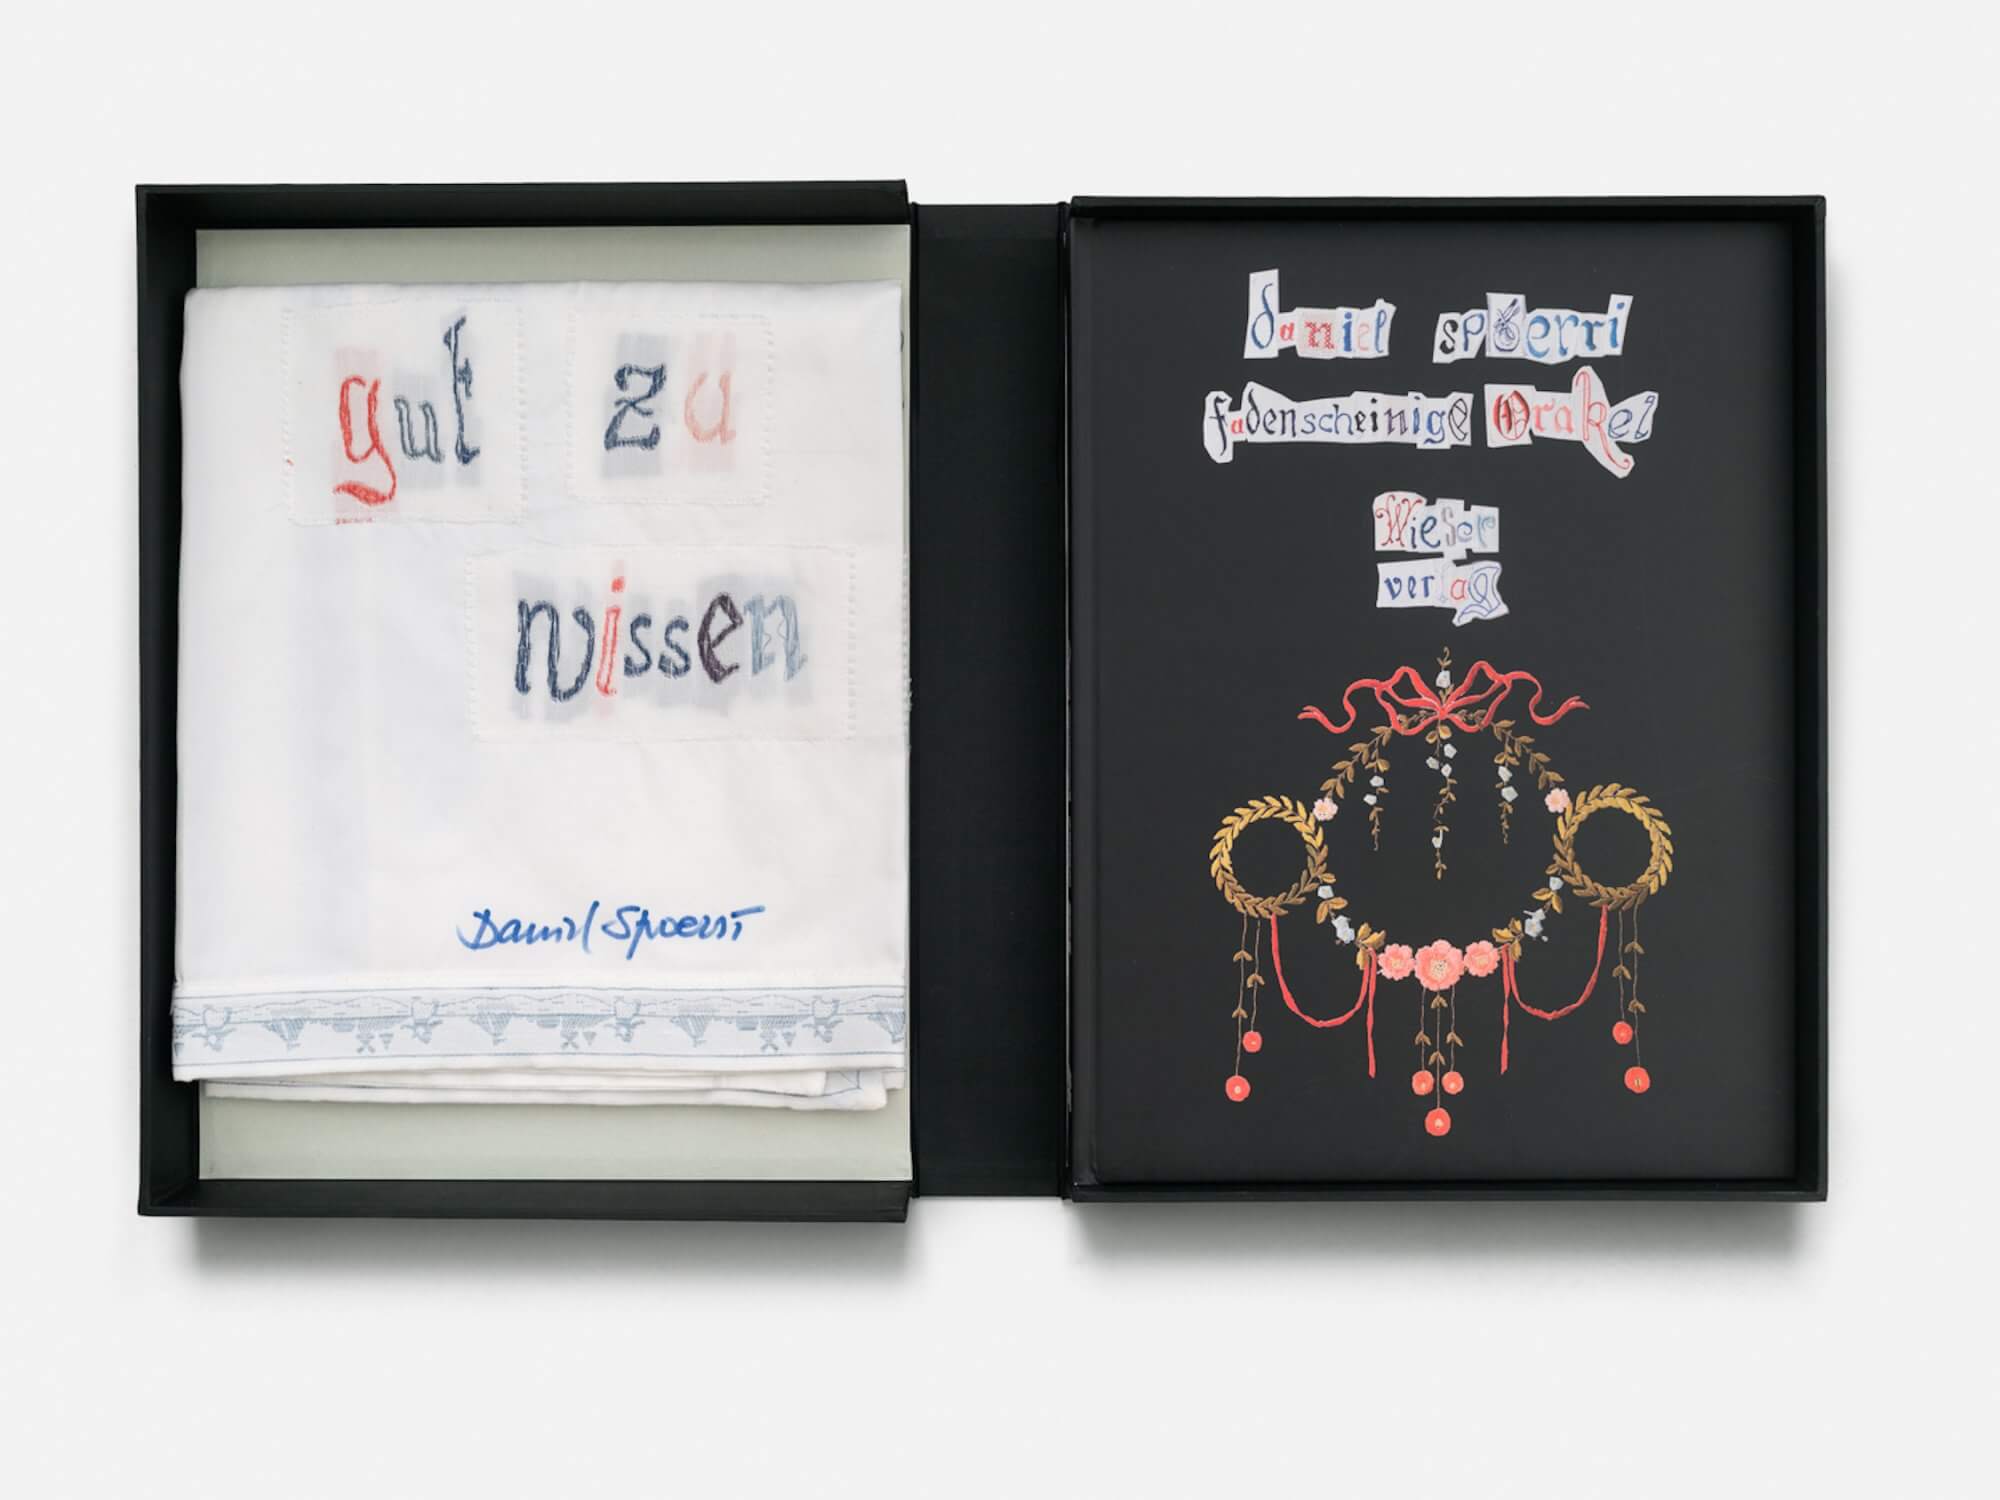 gut zu
wissen
Daniel Spoerri
daniel spoerri
fadenscheinige Orakel
Wieser
verlag